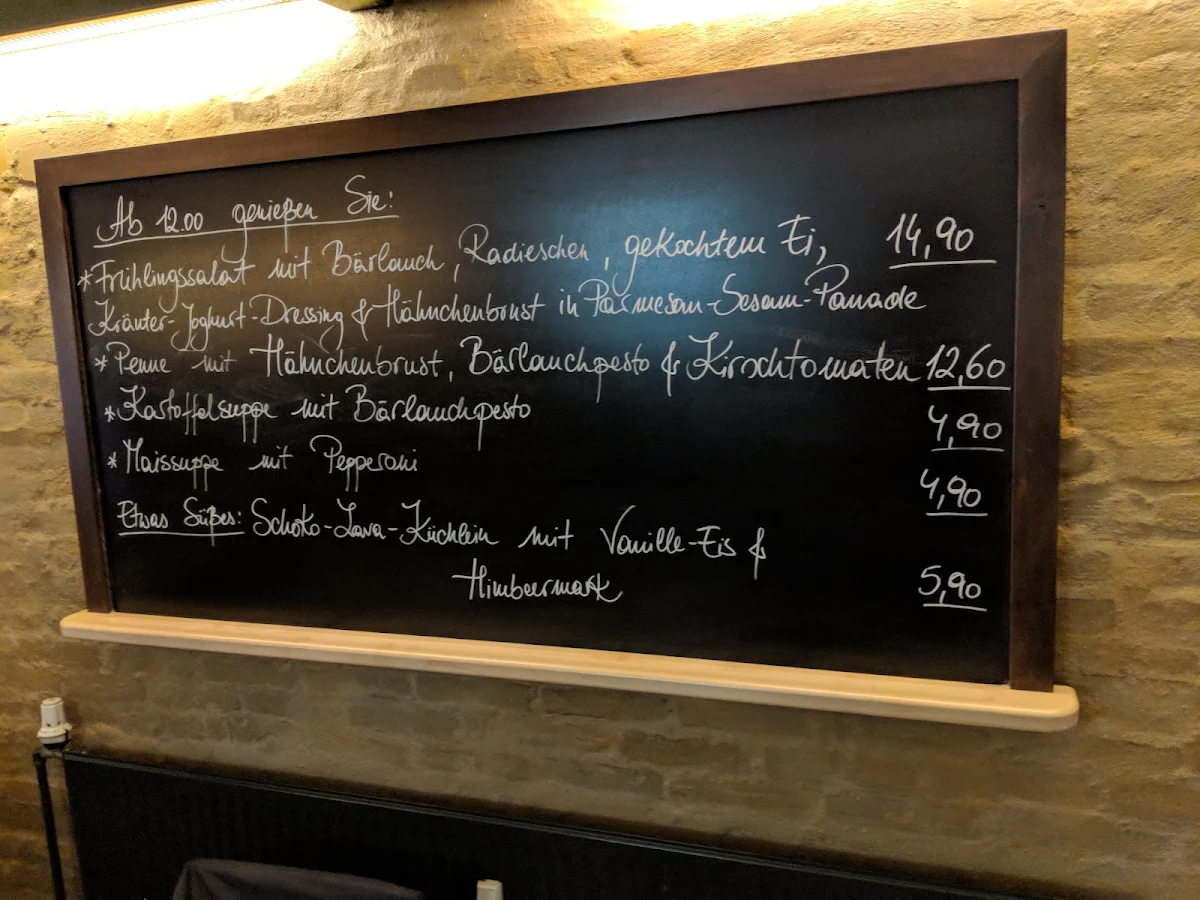 Ab 12.00 genießen Sie:
*Frühlingssalat mit Bärlauch, Radieschen, gekochtem Ei, 14,90
Kräuter-Joghurt-Dressing & Hähnchenbrust in Parmesan-Sesam-Panade
*Penne mit Hähnchenbrust, Bärlauchpesto & Kirschtomaten 12,60
*Kartoffelsuppe mit Bärlauchpesto 4,90
*Maissuppe mit Pepperoni 4,90
Etwas Süßes: Schoko-Lava-Küchlein mit Vanille-Eis &
Himbeermark 5,90